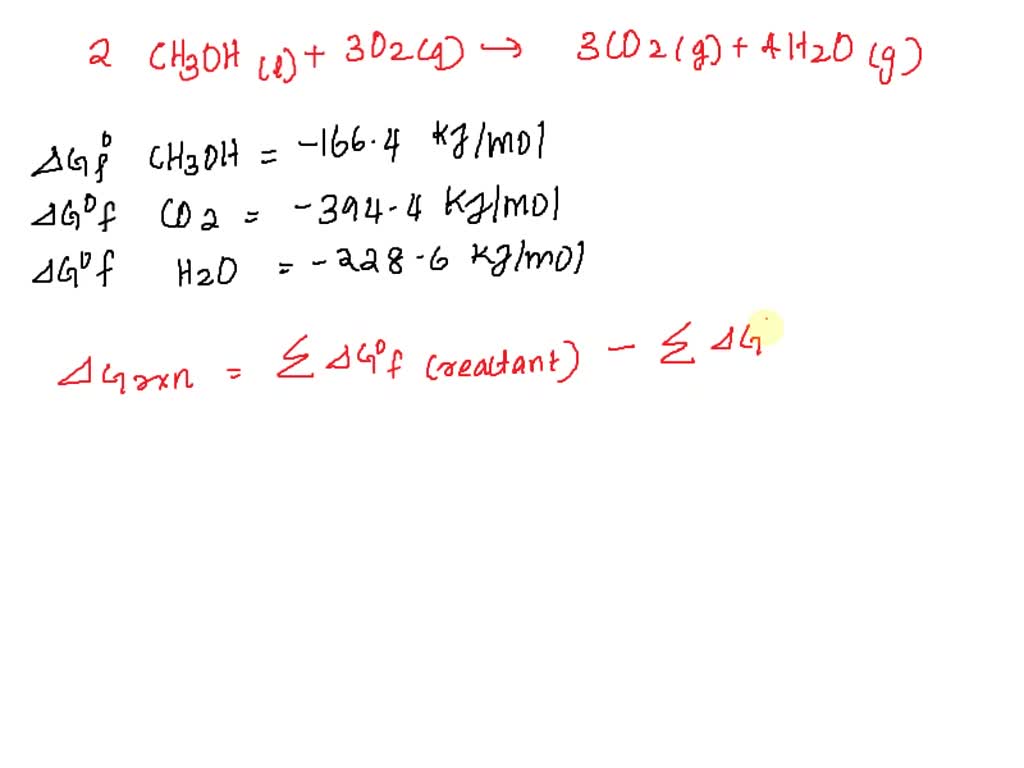 2 CH3OH (l) + 3O2(g) → 3CO2(g) + 4H2O(g)
ΔG°f CH3OH = -166.4 KJ/mol
ΔG°f CO2 = -394.4 KJ/mol
ΔG°f H2O = -228.6 KJ/mol
ΔGrxn = Σ ΔG°f (reactant) - Σ ΔG